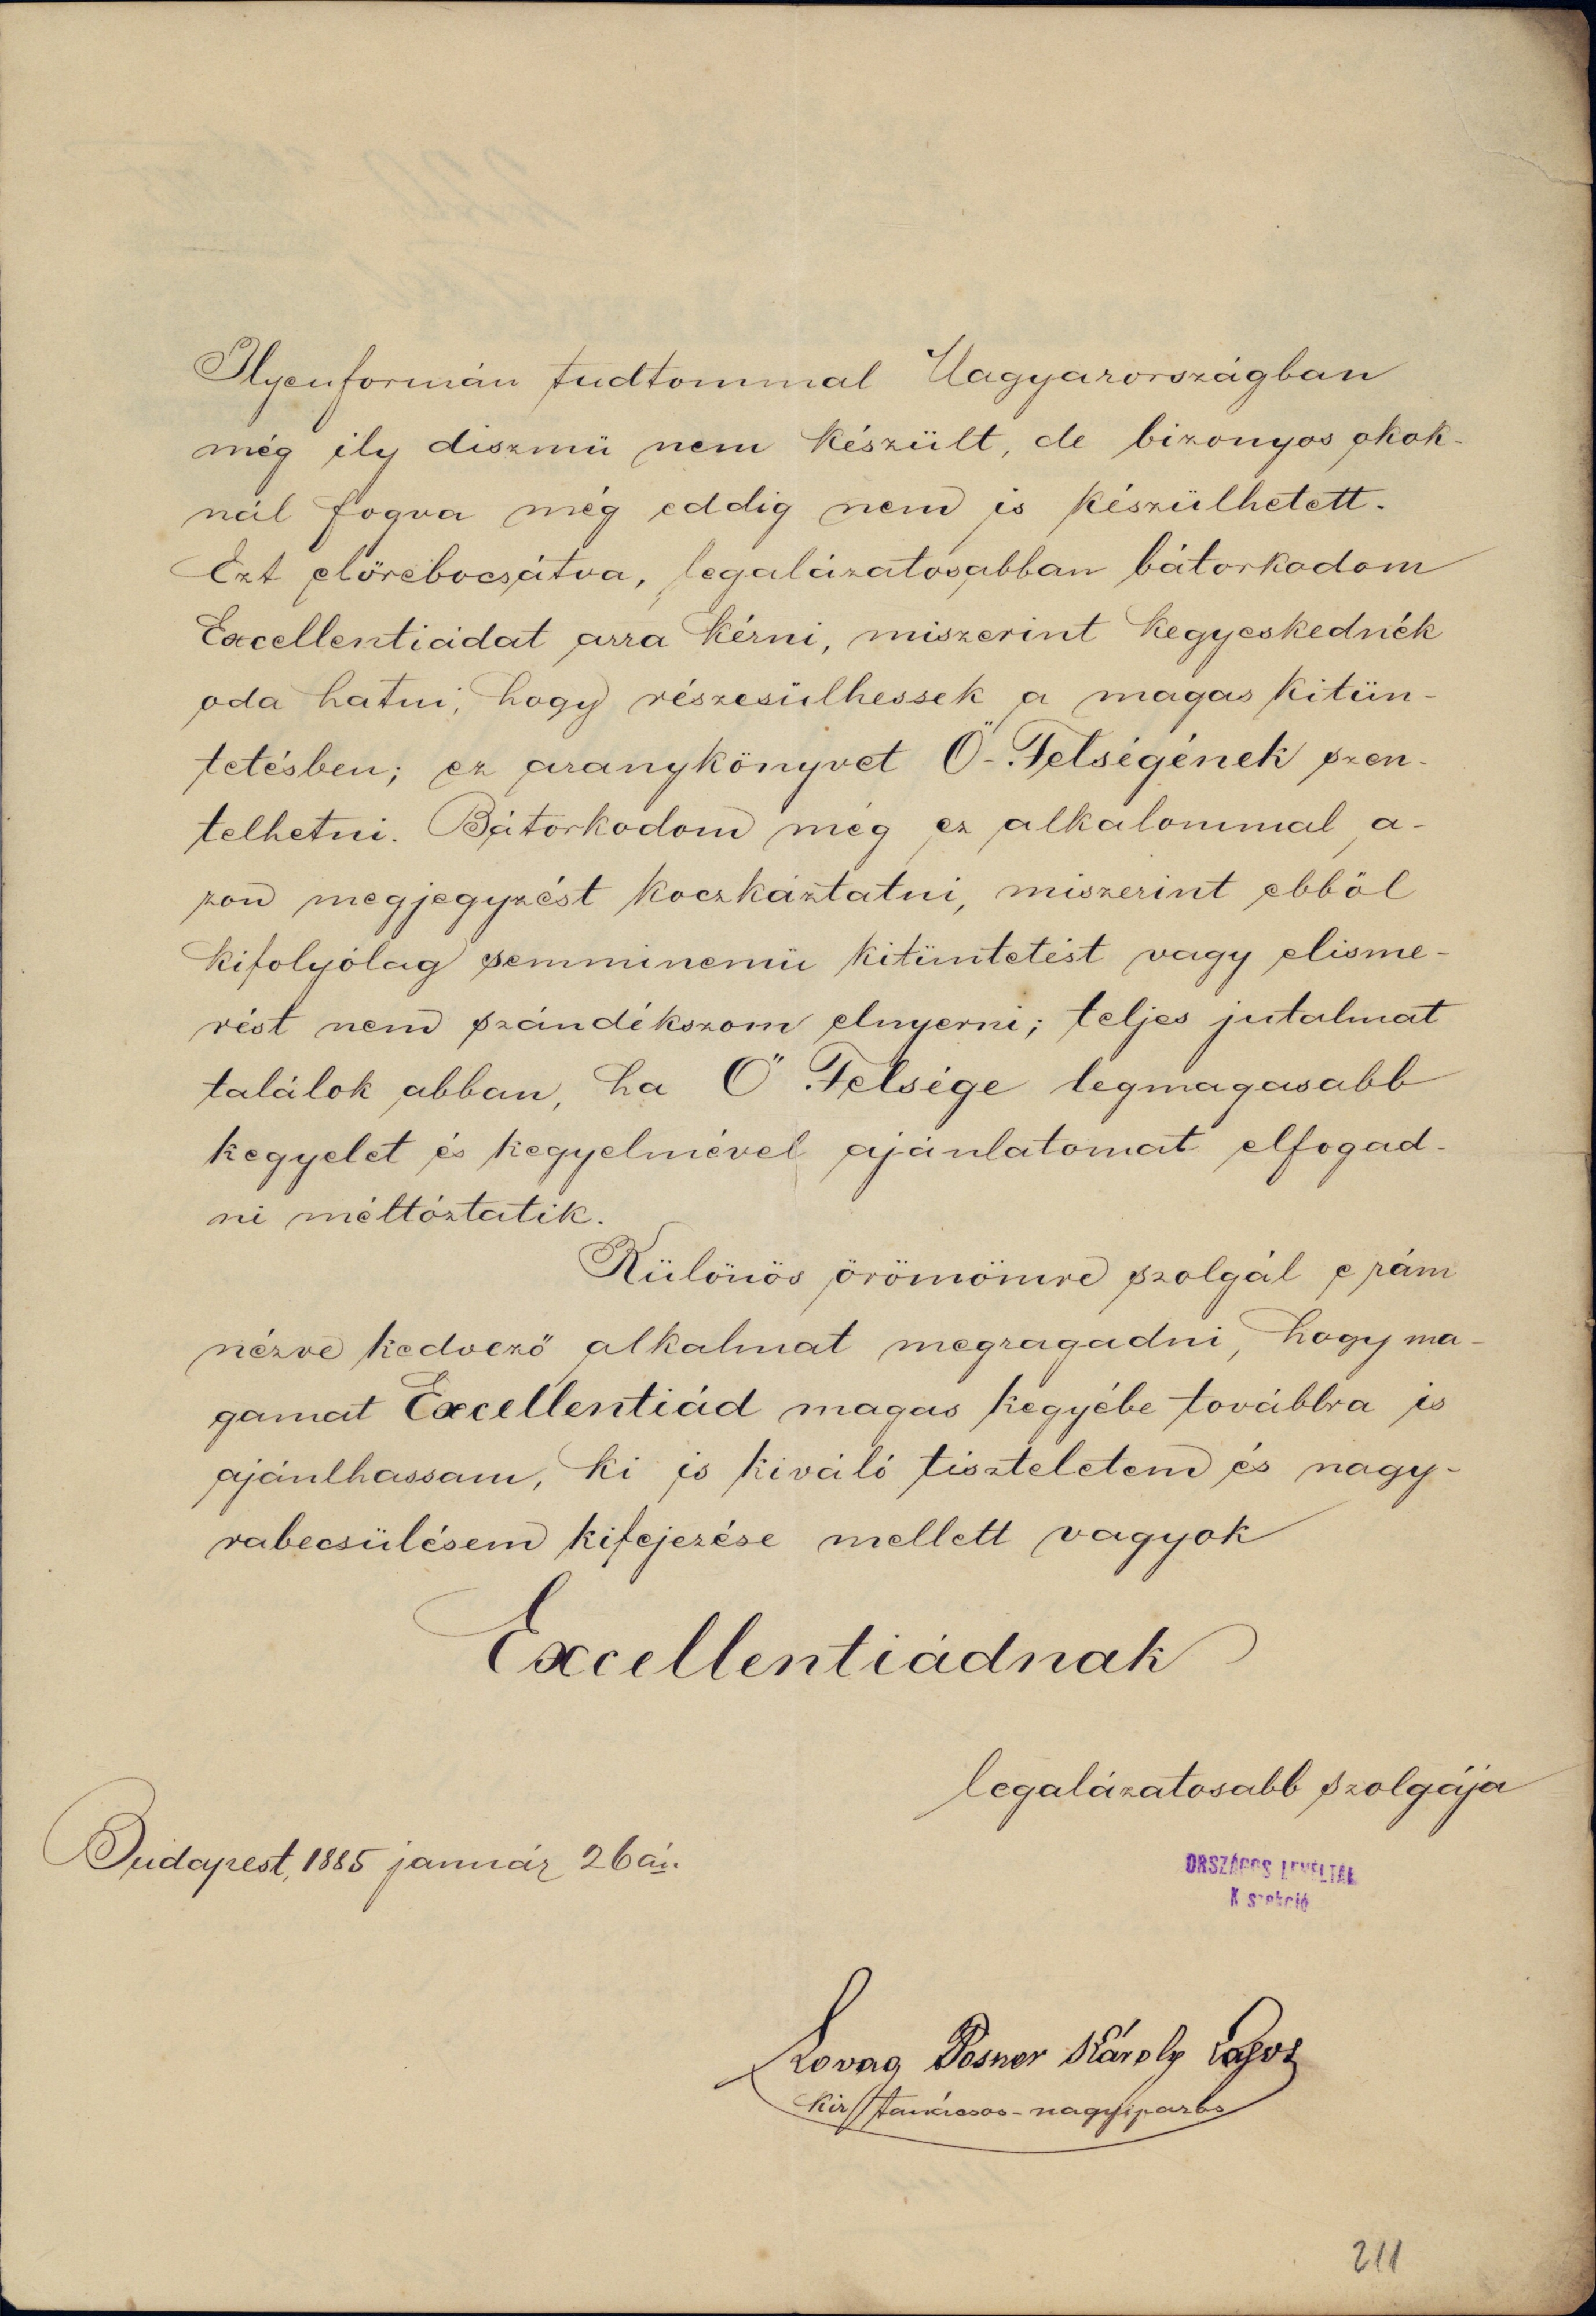 Ilyenformán tudtommal Magyarországban
még ily diszmü nem készült, de bizonyos okok-
nál fogva még eddig nem is készülhetett.
Ezt előrebocsátva, legalázatosabban bátorkodom
Excellentiádat arra kérni, miszerint kegyeskednék
oda hatni, hogy részesülhessek a magas kitün-
tetésben; ez aranykönyvet Ő-Felségének szen-
telhetni. Bátorkodom még ez alkalommal a-
zon megjegyzést koczkáztatni, miszerint ebböl
kifolyólag semminemü kitüntetést vagy elisme-
rést nem szándékszom elnyerni; teljes jutalmat
találok abban, ha Ő Felsége legmagasabb
kegyelet és kegyelmével ajánlatomat elfogad-
ni méltóztatik.
Különös örömömre szolgál e rám
nézve kedvező alkalmat megragadni, hogy ma-
gamat Excellentiád magas kegyébe továbbra is
ajánlhassam, ki is kiváló tiszteletem és nagy-
rabecsülésem kifejezése mellett vagyok
Excellentiádnak
legalázatosabb szolgája
Budapest, 1885 január 26án.
ORSZÁGOS LEVÉLTÁR
K szekció
Lovag Posner Károly Lajos
kir tanácsos-nagyiparos
211